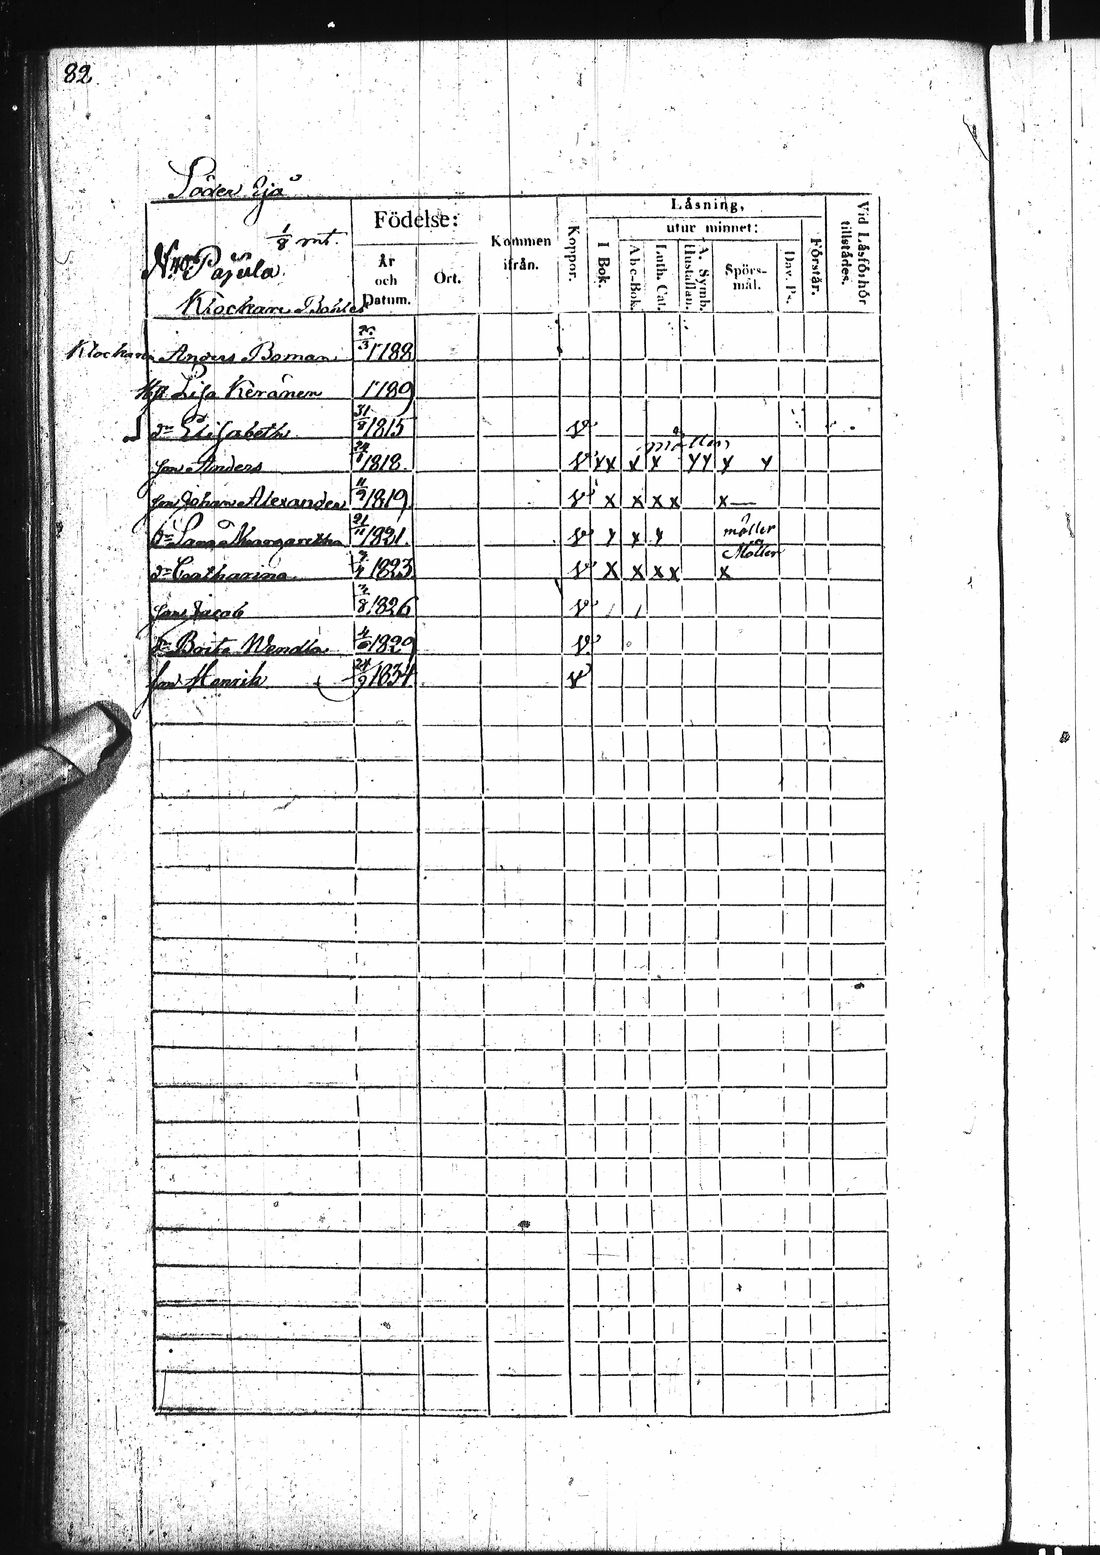 82
Söder Sjö
1/8 mt.
Pajula
Klockare Bohlet
Födelse:
År och Datum.
Ort.
Kommen ifrån.
Koppor.
Läsning,
utur minnet:
I Bok.
Abc-Bok.
Luth. Cat.
Hustaflan.
A. Symb.
Spörs-mål.
Dav. Ps.
Förstår.
Vid Läsförhör tillstädes.
Klockaren Anders Boman 1788
Hu Lisa Keränen 1789
dr Elisabeth 31/8 1815 v
son Anders 24/1 1818. v x x x x y y y y
son Johan Alexander 11/9 1819. v x x x x x
dr Margaretha 21/11 1821. v y x y möller
dr Catharina 1823 v x x x x x Möller
son Jacob 1826 v / /
dr Brita Wendla 1829 v
son Henrik 24/9 1834. v